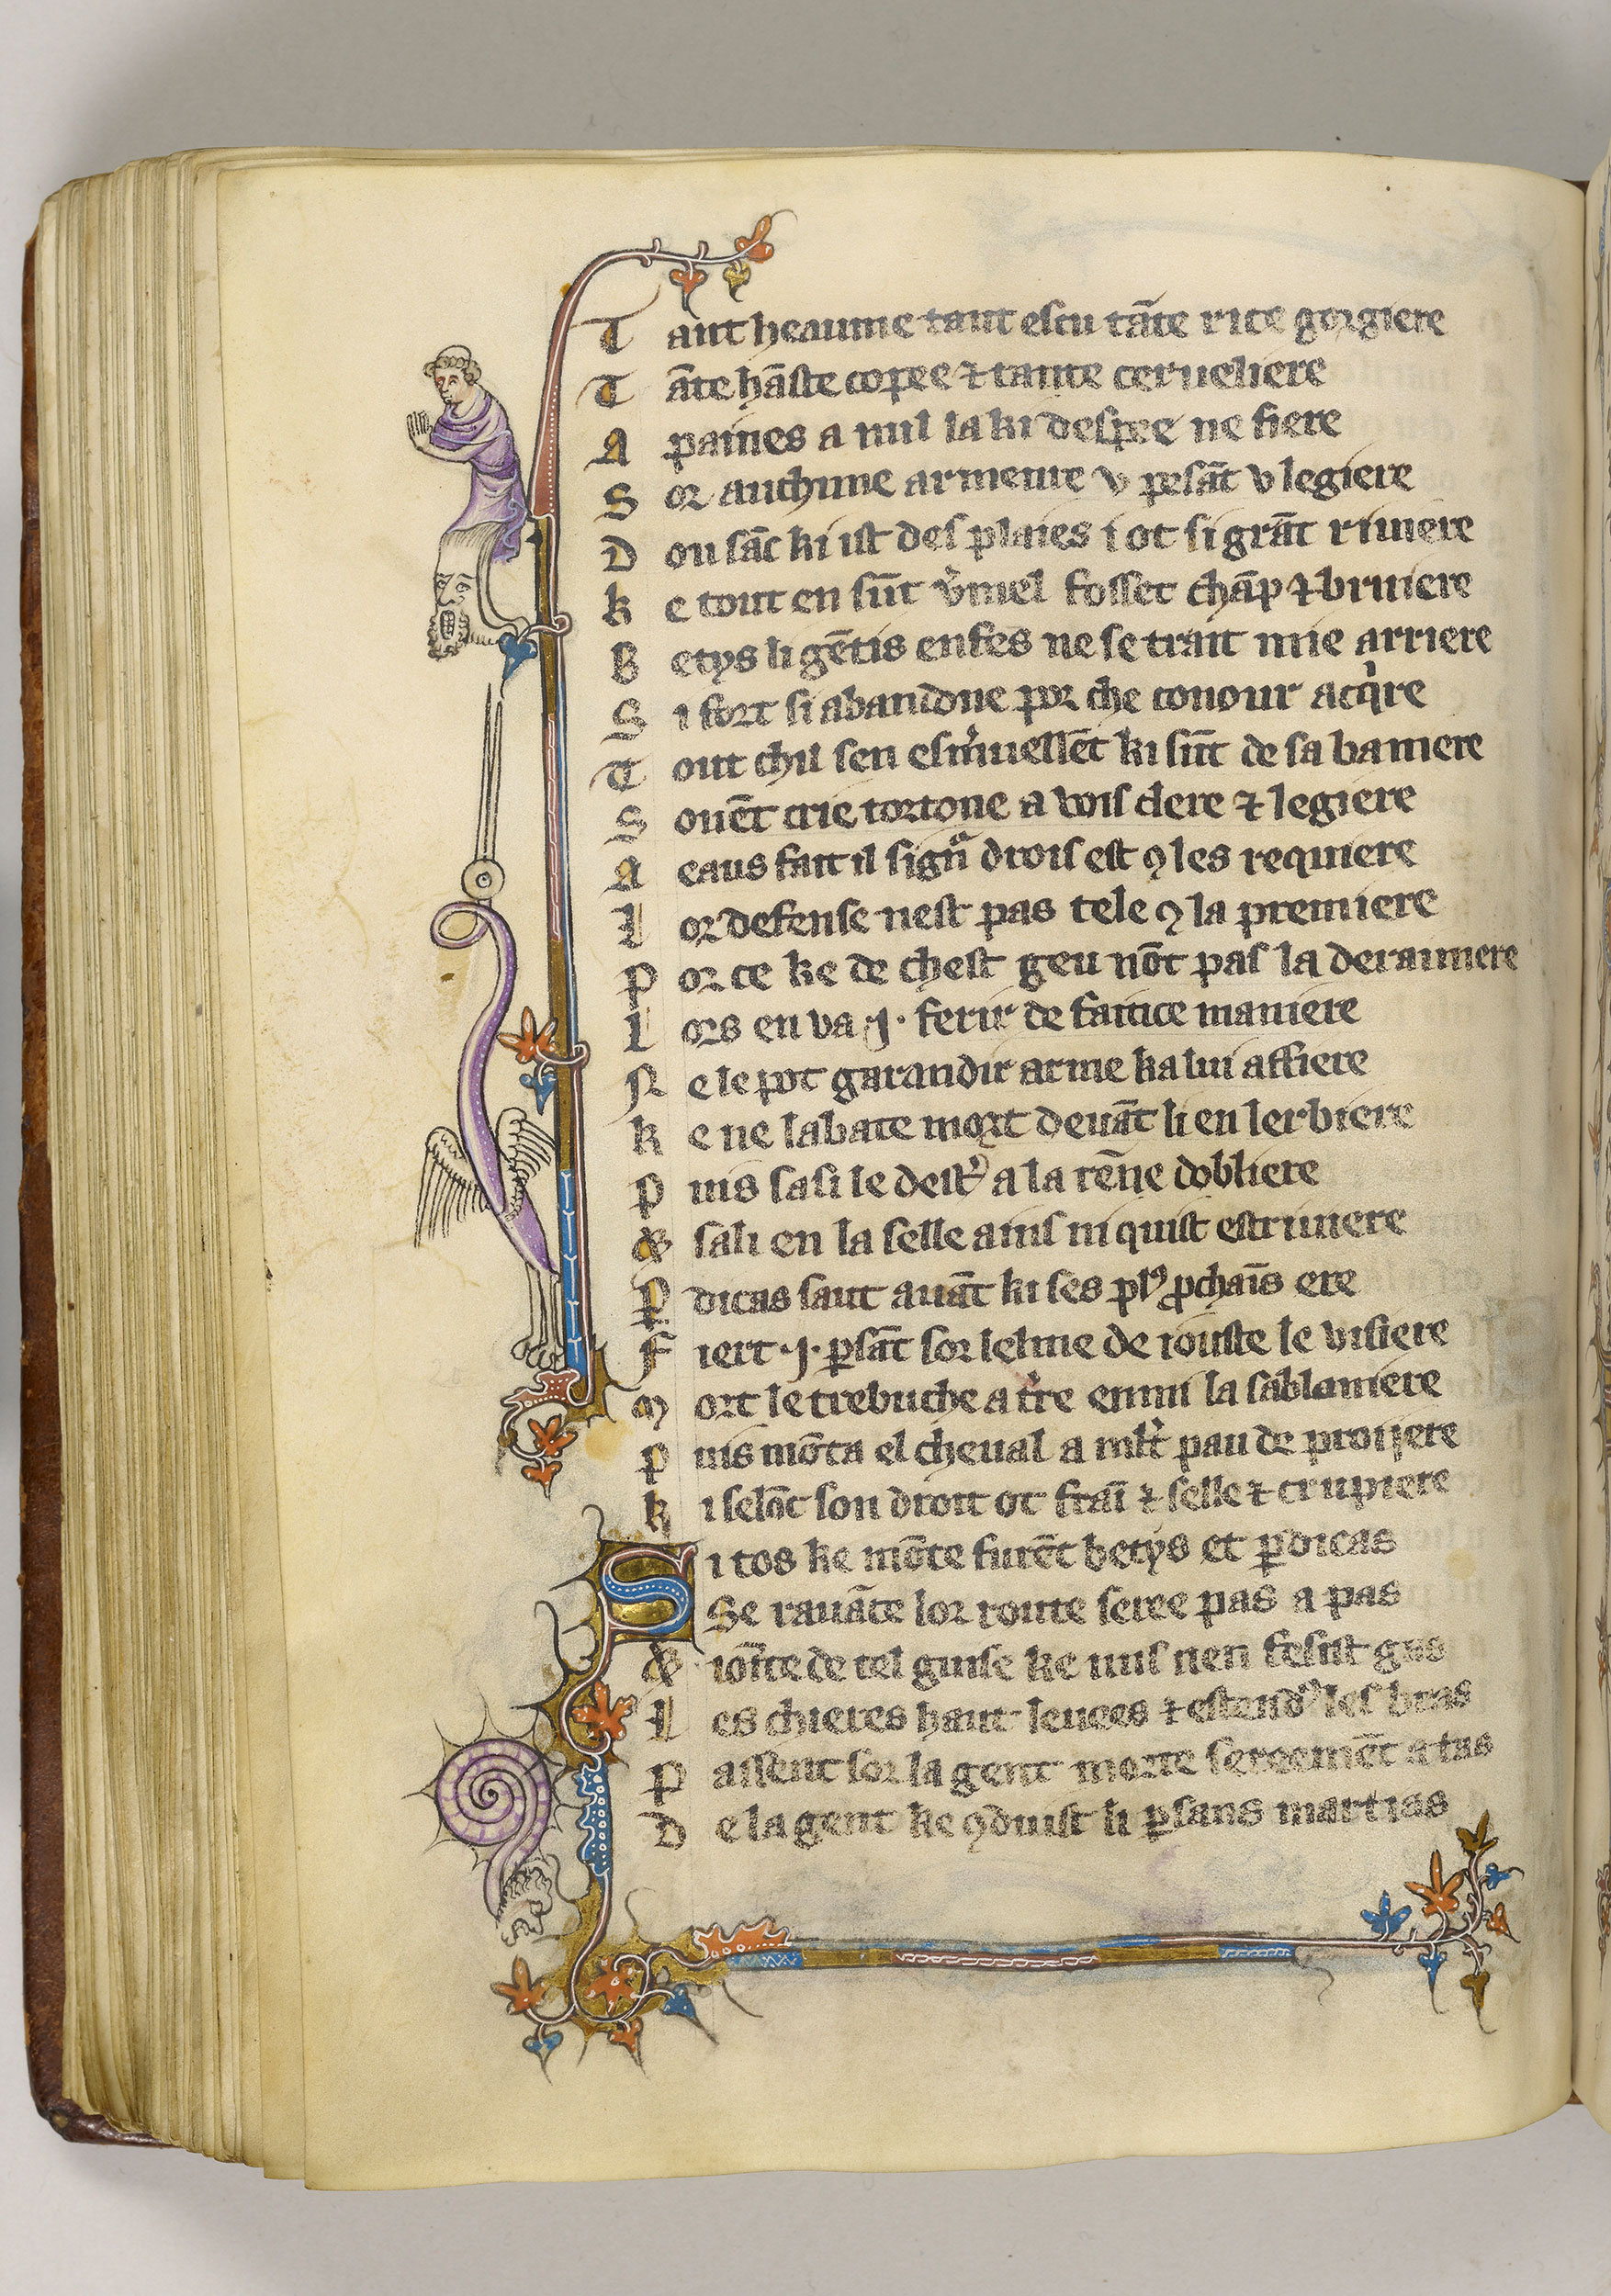 Tant heaume tant escu tāte rice gorgiere
Tāte hāste copee ⁊ tante cerueliere
A paines a nul la ki despee ne fiere
Sor auchune armeure v pesāt v legiere
Dou sāc ki ist des plaies i ot si grāt riuiere
Ke tout en sūt v̓mel fosset chāp ⁊ bruiere
Betys li gētis enfes ne se trait mie arriere
Si fort si abandone por che conour acqͥre
Tout chil sen esm̓uellēt ki sūt de sa baniere
Souēt crie tortone a vois clere ⁊ legiere
A eaus fait il sign̄ drois est ꝯ les requiere
Lor defense nest pas tele ꝯ la premiere
Por ce ke de chest geu nōt pas la derainiere
Lors en va .j. ferir de faitice maniere
Ne le pot garandir arme ka lui affiere
Ke ne labate mort deuāt li en lerbiere
Puis sasi le dest̓ a la rēne dobliere
& sali en la selle ains ni quist estriuiere
P̱dicas saut auāt ki ses plꝰ ꝓchaīs ere
Fiert .j. ꝑsāt sor lelme de iouste le visiere
Mort le trebuche a t̓re enmi la sabloniere
Puis mōta el cheual a mlt̓ pau de proijere
Ki selōc son droit ot fraī ⁊ selle ⁊ crupiere
Si tos ke mōte furēt betys et ꝑdicas
Se rauāce lor route seree pas a pas
& ioīte de tel guise ke nus nen fesist gas
Les chieres haut leuees ⁊ estend̓ les bras
Passent sor la gent morte sereemēt a tas
De la gent ke ꝯduist li ꝑsans martias